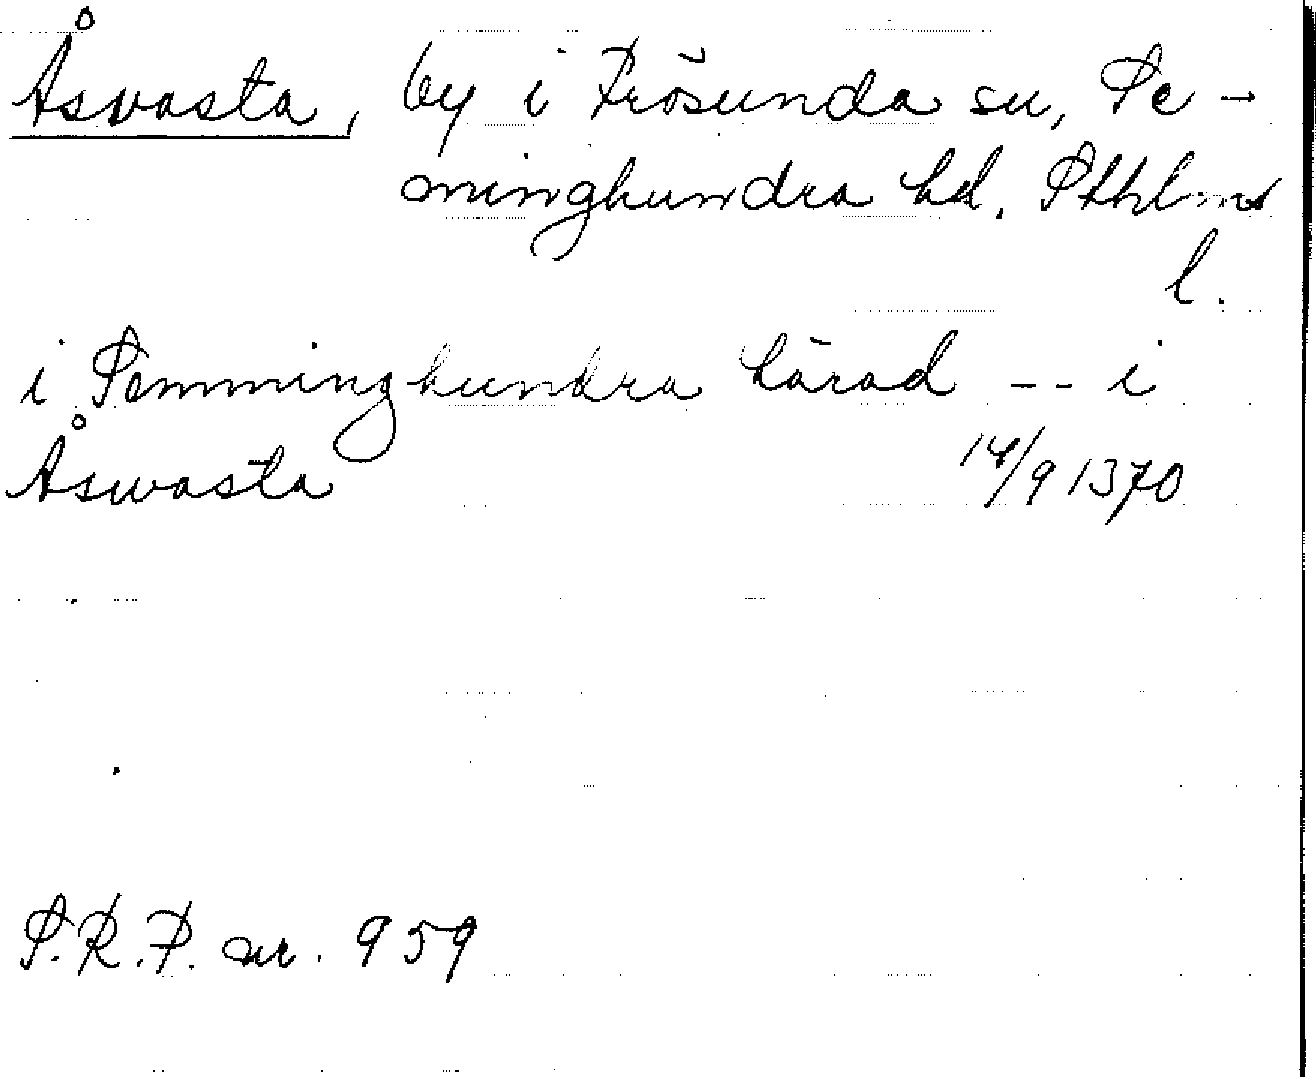 Åsvasta, by i Frösunda sn, Se-
minghundra hd. Sthlms
l.
i Semminghundra härad -- i
Åswasta 14/9 1370
S.R.P. nr. 959